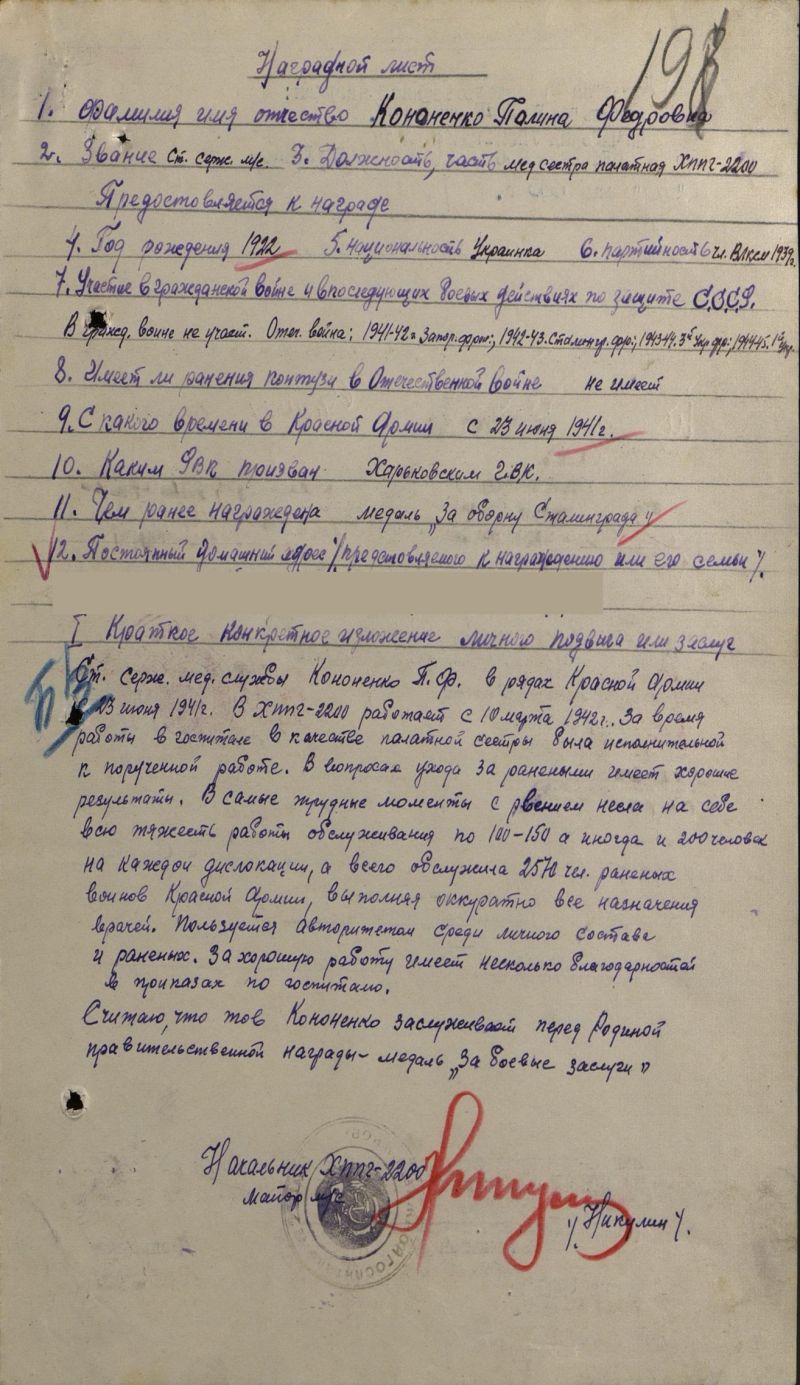 198
Наградной лист
1. Фамилия имя отчество Кононенко Палина Федоровна
2. Звание Ст. серж. м/с. 3. Должность, часть мед сестра палатная ХППГ-2200
Предоставляется к награде
4. Год рождения 1922 5. национальность Украинка 6. партийность чл. ВЛКСМ 1939г.
7. Участие в гражданской войне и впоследующих боевых действиях по защите С.С.С.Р.
В гражд. войне не участ. Отеч. война: 1941-42г. Запор. фронт, 1942-43. Сталингр. фр.; 1943-44. 3й Укр. фр.; 1944-45. 1й Укр.
8. Имеет ли ранения контузи в Отечественной войне не имеет
9. С какого времени в Красной Армии С 23 июня 1941г.
10. Каким РВК призван Харьковским Г.В.К.
11. Чем ранее награждена медаль „За оборну Сталинграда"
12. Постоянный домашний адрес /представляемого к награждению или его семьи/.
I Краткое конкретное изложение личного подвига или заслуг
Ст. серж. мед. службы Кононенко П.Ф. в рядах Красной Армии
с 23 июня 1941г. В ХППГ-2200 работает с 10 марта 1942г. За время
работы в госпитале в качестве палатной сестры была исполнительной
к порученной работе. В вопросах ухода за ранеными имеет хорошие
результаты. В самые трудные моменты с рвением несла на себе
всю тяжесть работы обслуживания по 100-150 а иногда и 200 человек
на каждой дислокации, а всего обслужила 2570 чел. раненых
воинов Красной Армии, выполняя оккуратно все назначения
врачей. Пользуется авторитетом среди личного состава
и раненых. За хорошую работу имеет несколько благодарностей
в приказах по госпиталю.
Считаю, что тов Кононенко заслуживает перед Родиной
правительственной награды - медаль „За боевые заслуги"
Начальник ХППГ-2200
майор м/с
/Никулин/.